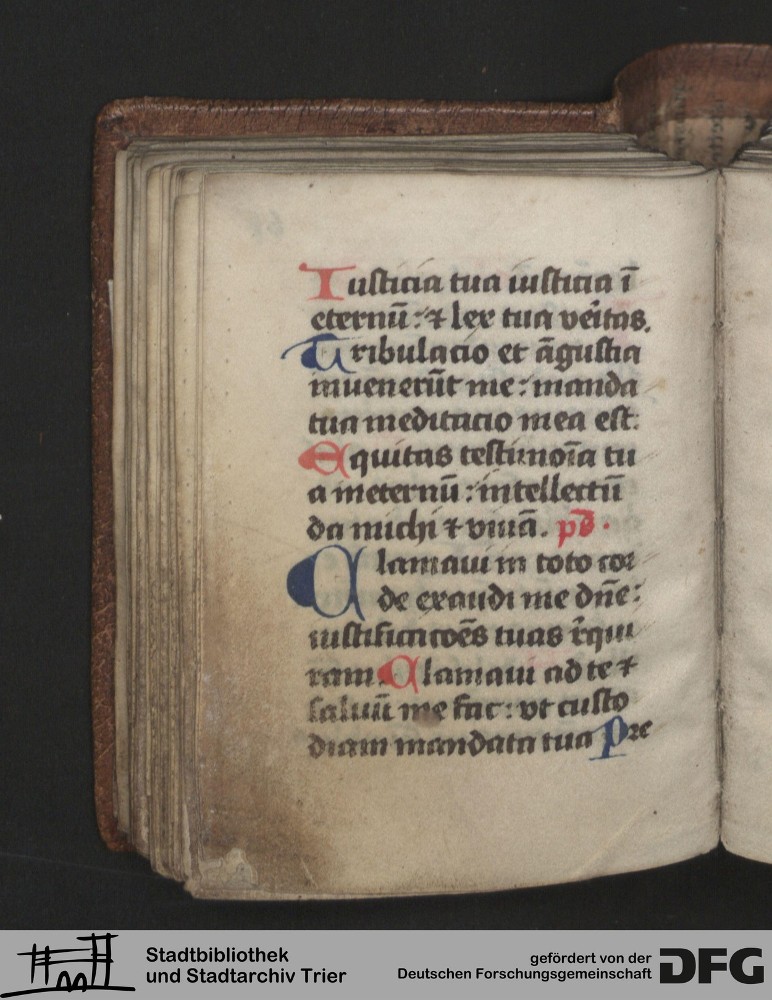 Iusticia tua iusticia ī
eternū : ⁊ lex tua ver̄itas.
Tribulacio et āgustia
inuenerūt me : manda
tua meditacio mea est:
Equitas testimoīa tu
a ineternū : intellectū
da michi ⁊ viuā. ps̄ .
Clamaui in toto cor
de exaudi me dn̄e :
iustificacōēs tuas r̄qui
ram. Clamaui ad te ⁊
saluū me fac : vt custo
diam mandata tua Pre
Stadtbibliothek
und Stadtarchiv Trier
gefördert von der
Deutschen Forschungsgemeinschaft
DFG